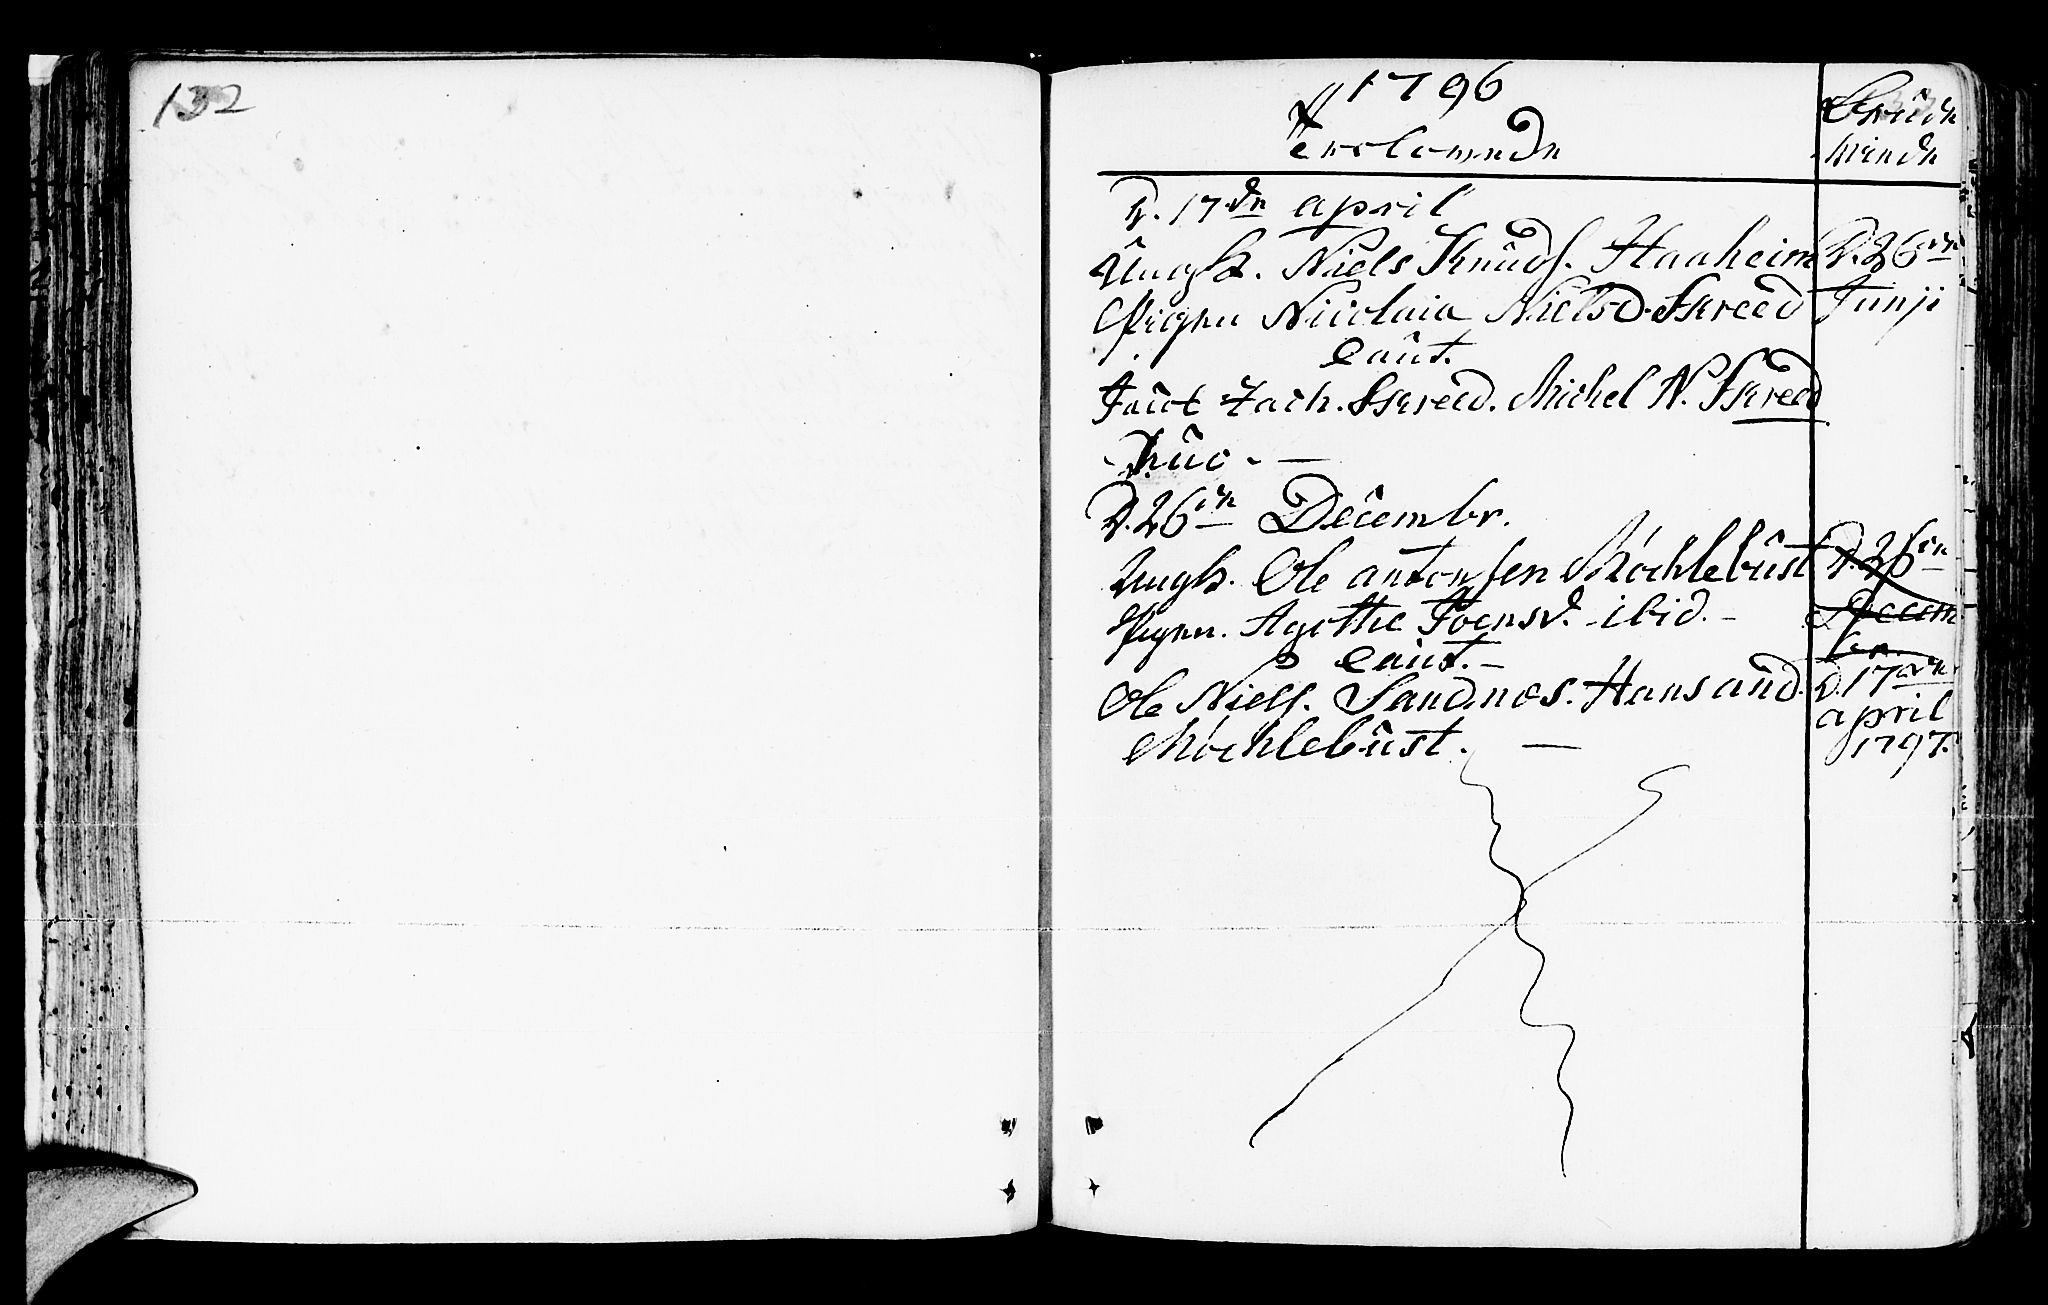 132
1796
Trolovede
D. 17de april
Ungk. Niels Knuds. Haaheim
Pigen Nicolaia Nielsd. Skreed
Caut.
Zach. Skreed. Michel N. Skreed
D. 26de Decembr.
Ungk. Ole antonsen Möchlebust
Pigen. Agethe Joensd. ibid.
Caut.
Ole Niels. Sandnæs. Hans and.
Möchlebust.
D. 26de
Junji
D. 26de
Decem
br.
D. 17de
april
1797.